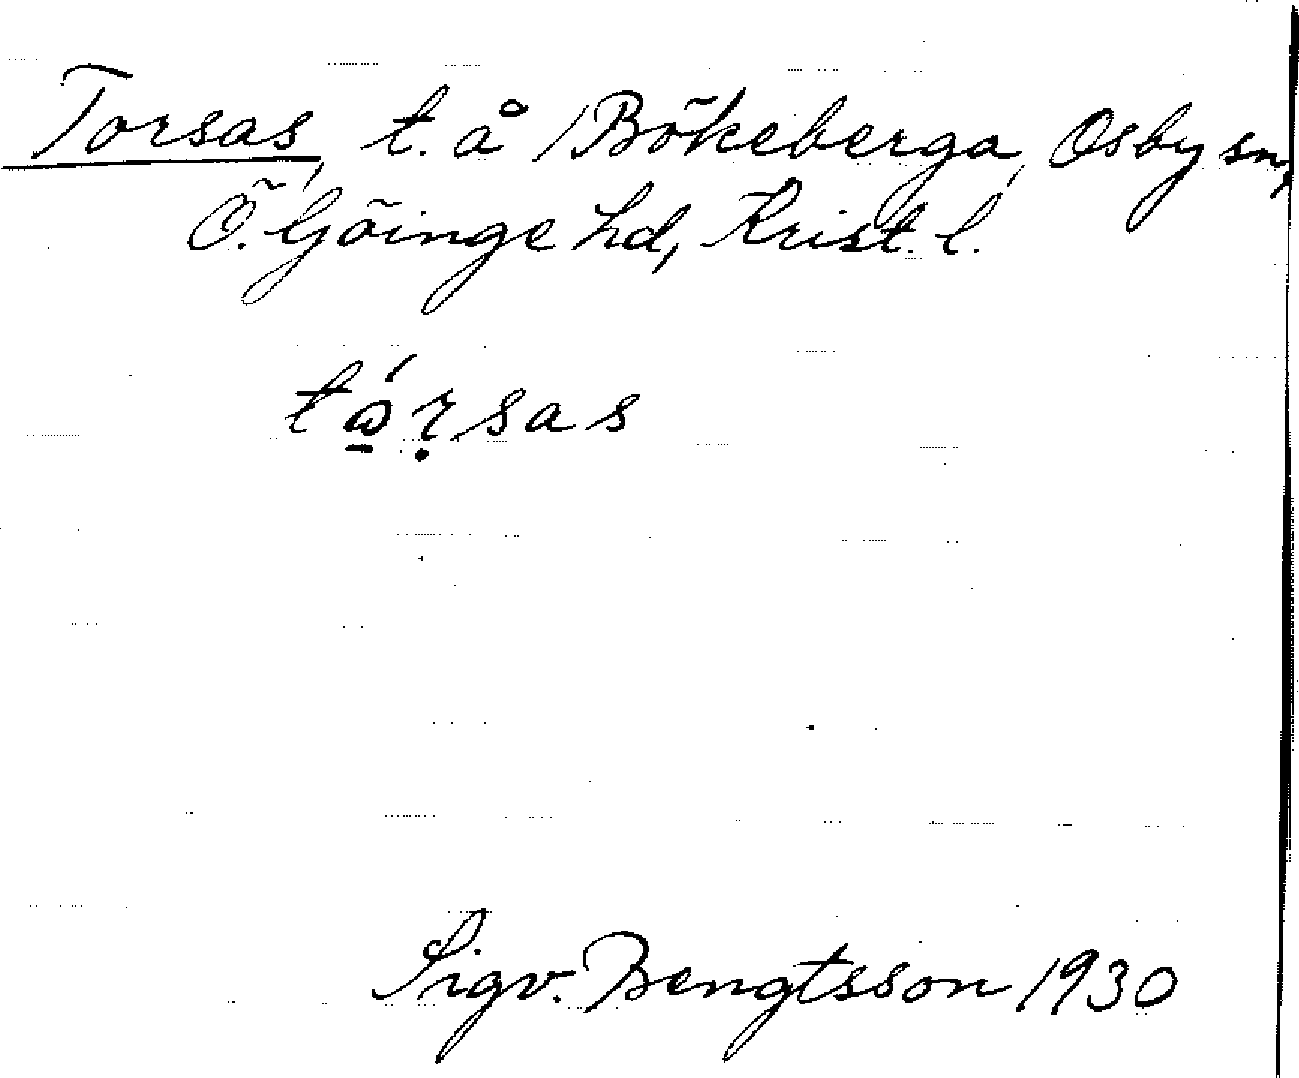 Torsas, t. å Bökeberga, Osby sn,
Ö. Göinge hd, Krist. l.
tώ̱ṛsas
Sigv. Bengtsson 1930